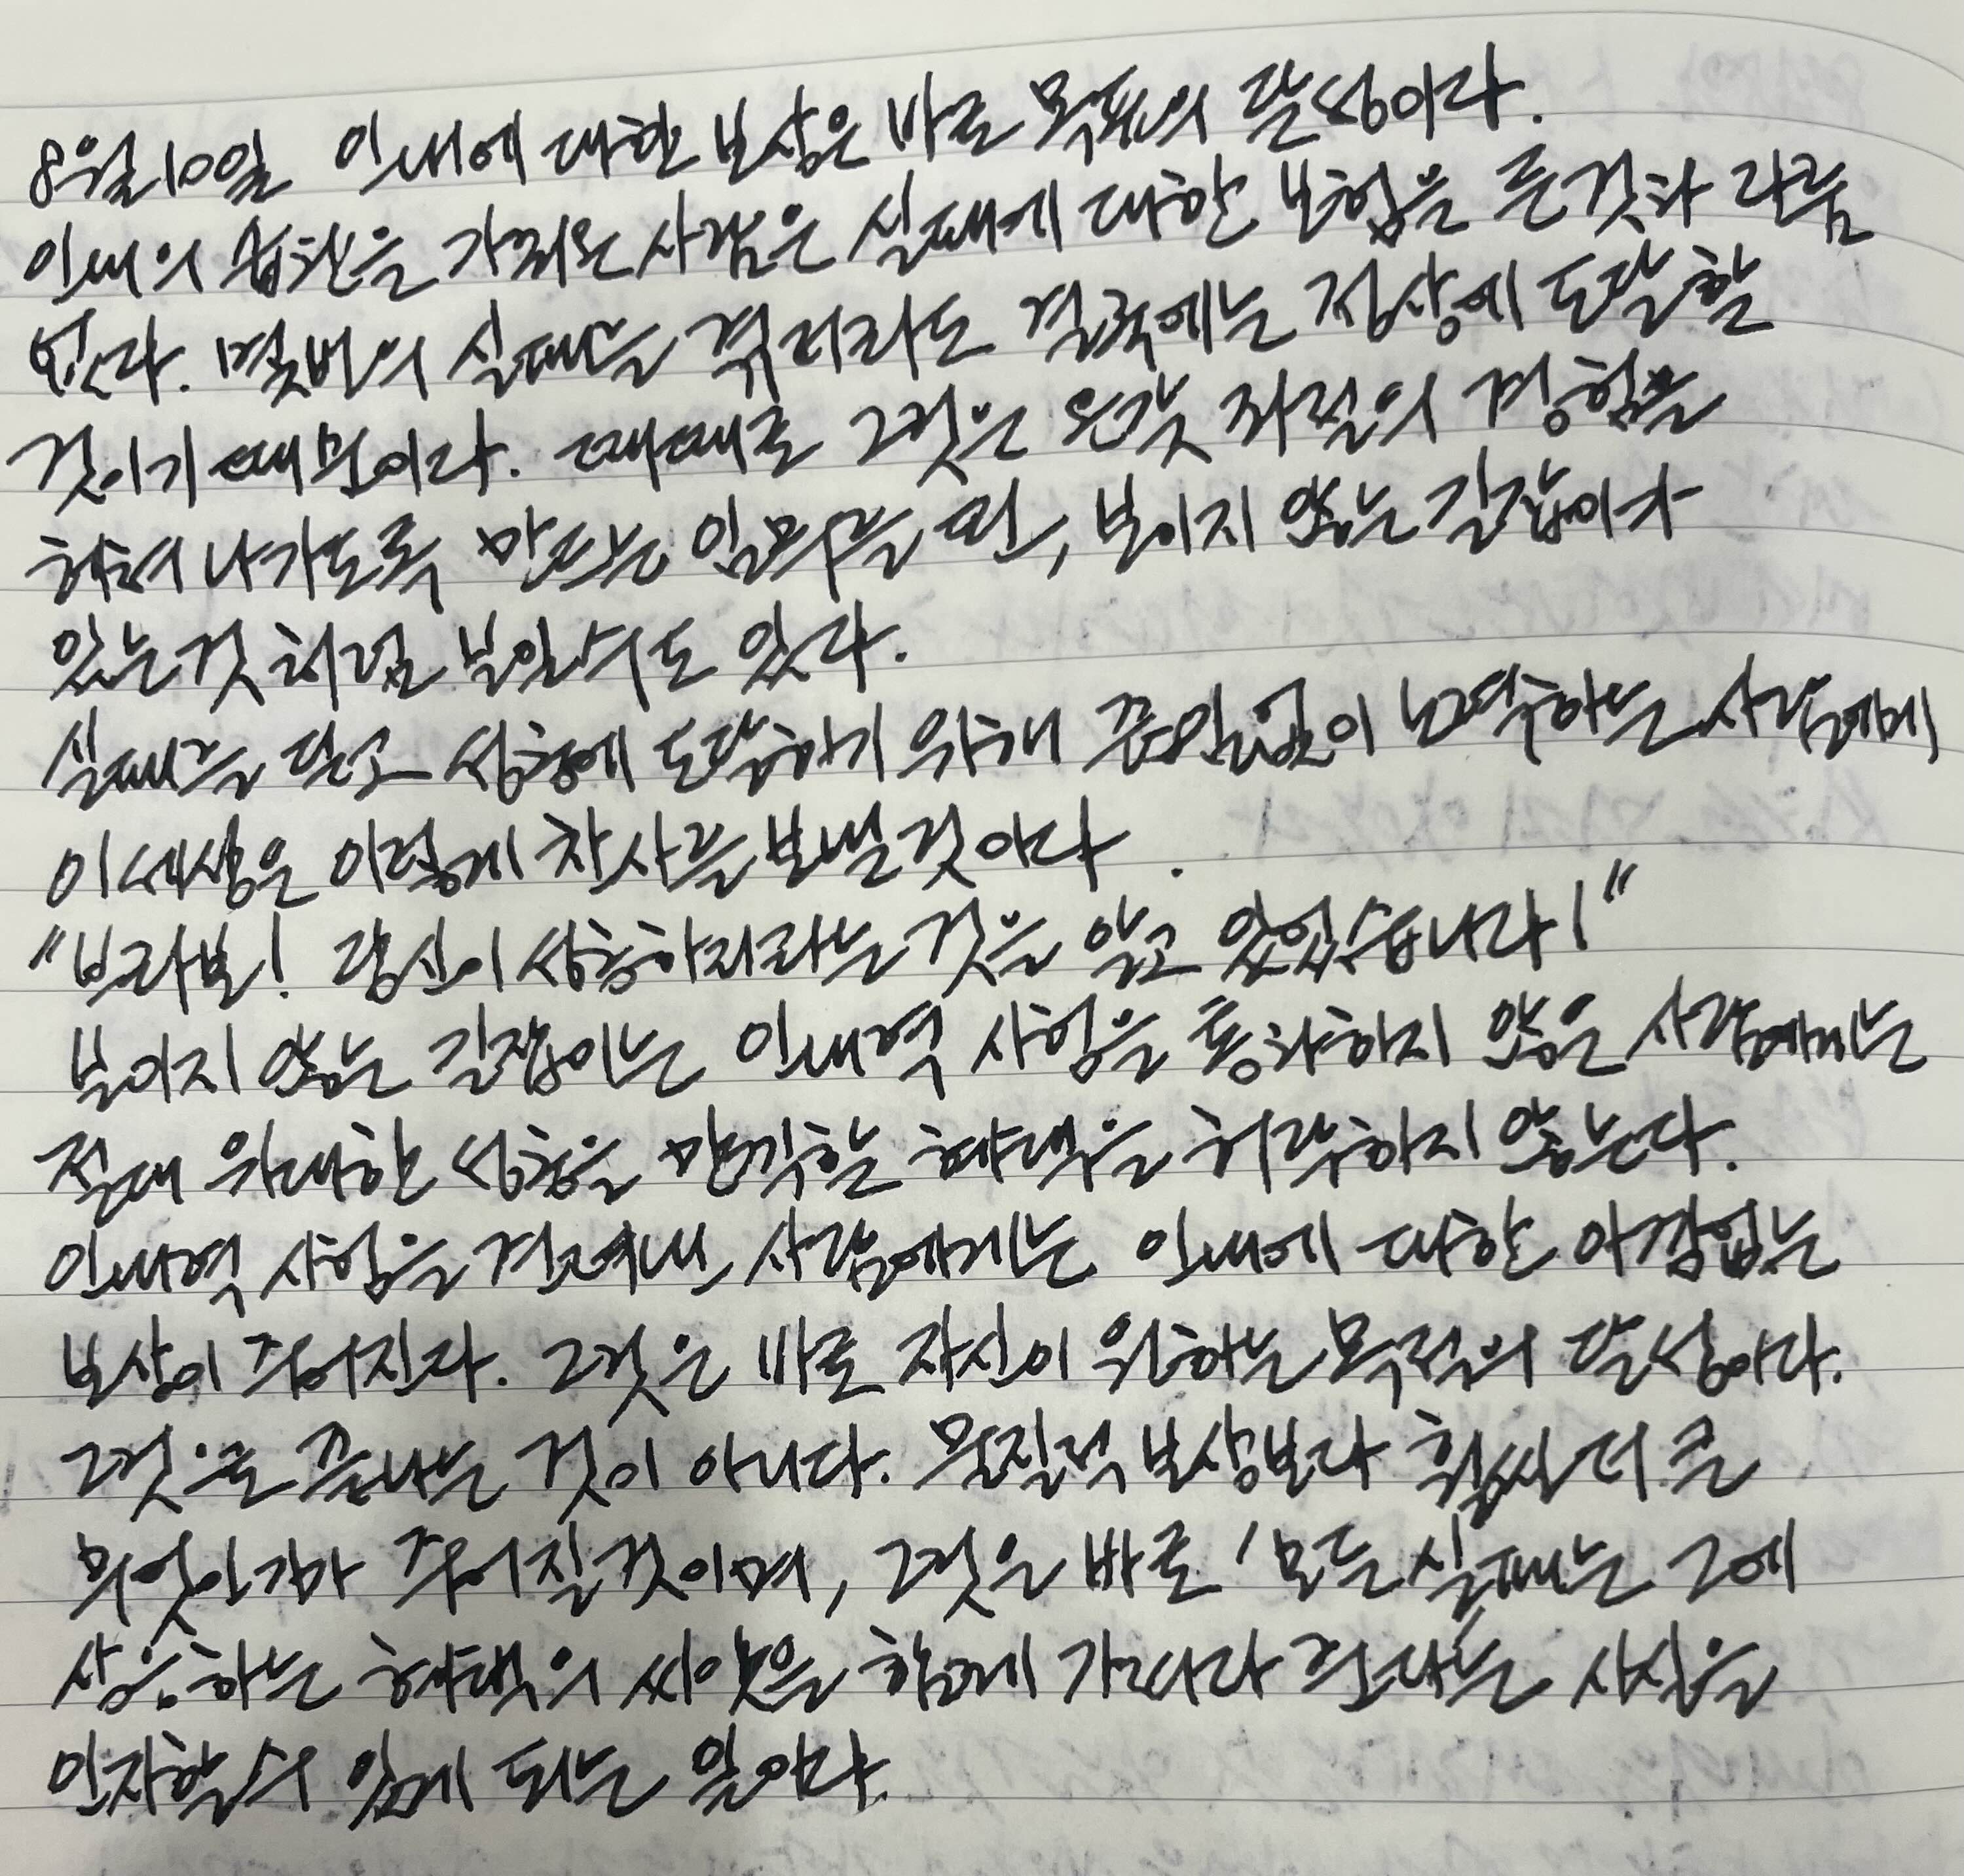 8월10일 인내에 대한 보상은 바로 목표의 달성이다.
인내의 습관을 가져온 사람은 실패에 대한 보험을 든것과 다름
없다. 몇번의 실패를 겪더라도 결국에는 정상에 도달할
것이기 때문이다. 때때로 그것은 온갖 좌절의 경험을
헤쳐 나가도록 만드는 임무를 띤, 보이지 않는 길잡이가
있는것 처럼 보일수도 있다.
실패를 딛고 성공에 도달하기 위해 끊임없이 노력하는 사람에게
이 세상은 이렇게 찬사를 보낼것이다.
"브라보! 당신이 성공하리라는 것을 알고 있었습니다!"
보이지 않는 길잡이는 인내력 시험을 통과하지 않은 사람에게는
절대 위대한 성공을 만끽할 혜택을 허락하지 않는다.
인내력 시험을 견뎌낸 사람에게는 인내에 대한 아낌없는
보상이 주어진다. 그것은 바로 자신이 원하는 목적의 달성이다.
그것으로 끝나는 것이 아니다. 물질적 보상보다 훨씬 더 큰
무엇인가가 주어질것이며, 그것은 바로 '모든 실패는 그에
상응하는 혜택의 씨앗을 함께 가져다 준다'는 사실을
인지할수 있게 되는 일이다.